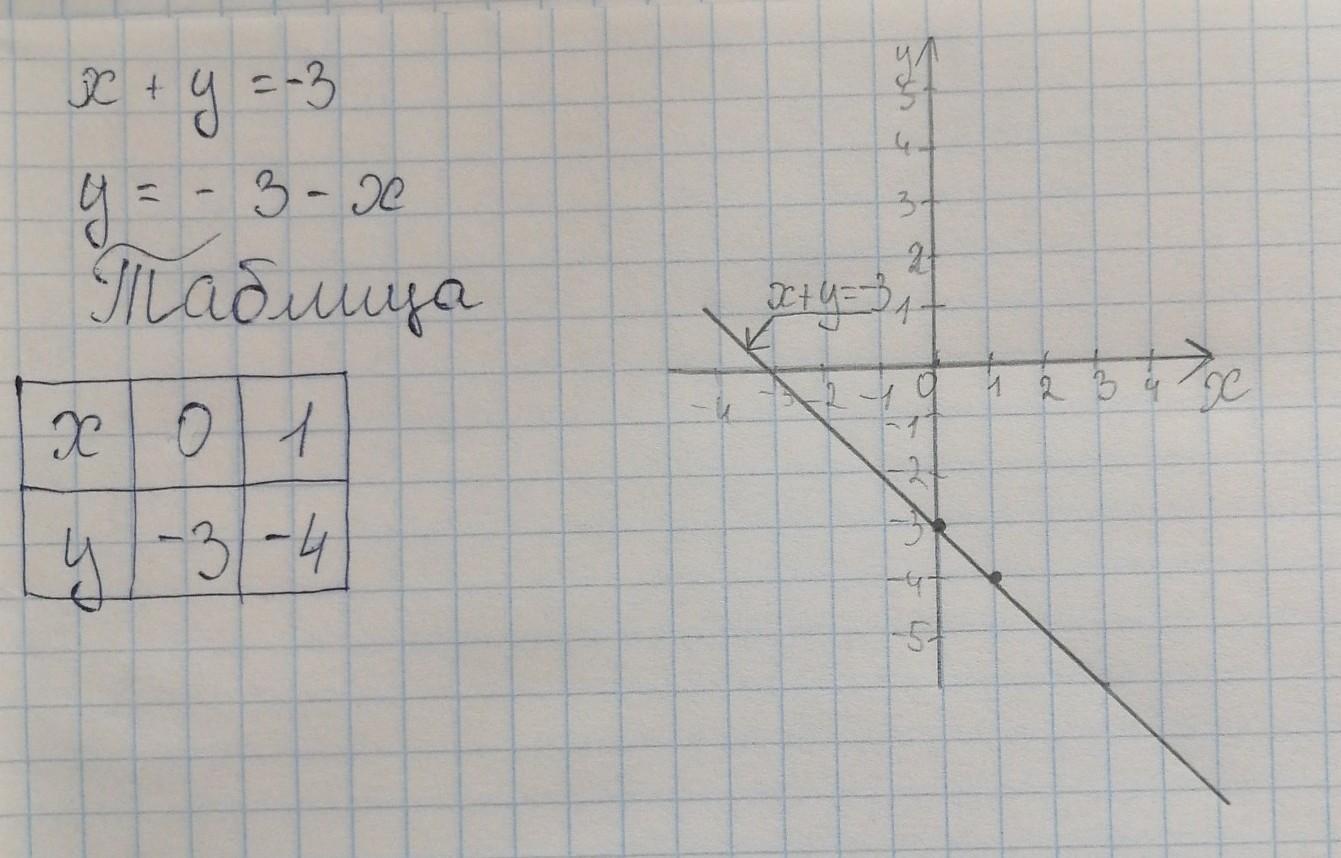 x + y = -3
y = - 3 - x
Таблица
x 0 1
y -3 -4
y
5
4
3
2
x+y=-3 1
-4 -3 -2 -1 0 1 2 3 4 x
-1
-2
-3
-4
-5